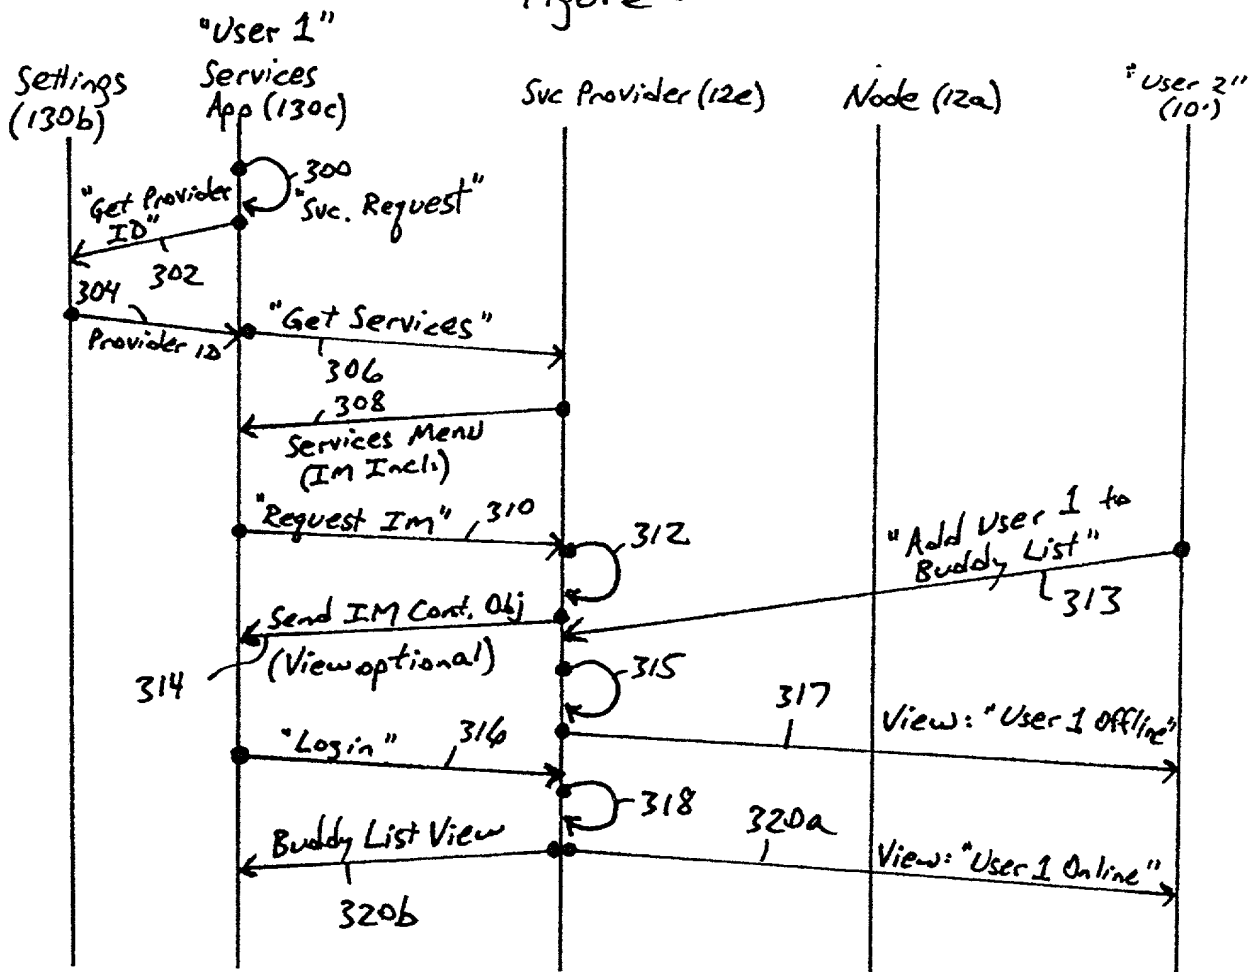 Figure
"User 1"
Services
App (130c)
Settings
(130b)
Svc Provider (12e)
Node (12a)
"User 2"
(10')
300
"Svc. Request"
"Get Provider
ID"
302
304
Provider ID
"Get Services"
306
308
Services Menu
(IM Incl.)
"Request IM"
310
312
"Add User 1 to
Buddy List"
313
Send IM Cont. Obj
(View optional)
314
315
317
View: "User 1 Offline"
"Login"
316
318
320a
Buddy List View
View: "User 1 Online"
320b